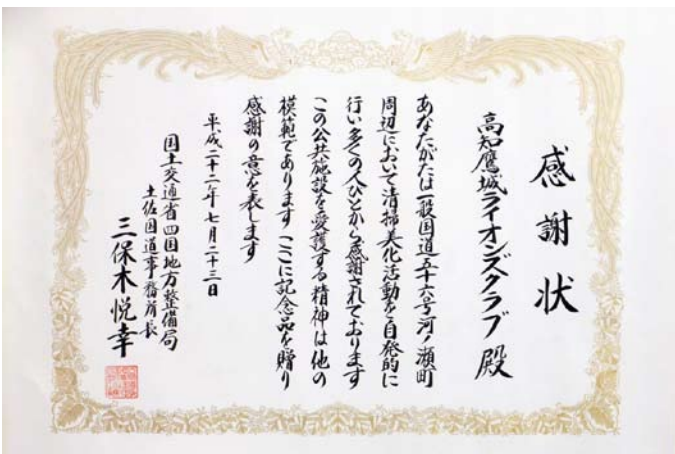 感謝状
高知鷹城ライオンズクラブ 殿
あなたがたは一般国道五十六号河ノ瀬町
周辺において清掃美化活動を自発的に
行い多くの人びとから感謝されております
この公共施設を愛護する精神は他の
模範であります ここに記念品を贈り
感謝の意を表します
平成二十二年七月二十三日
国土交通省四国地方整備局
土佐国道事務所長
三保木悦幸